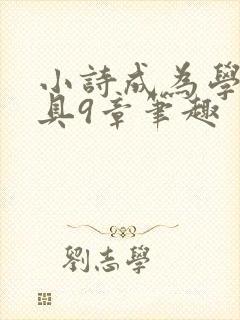 小詩成為學
具9章筆趣
劉志學